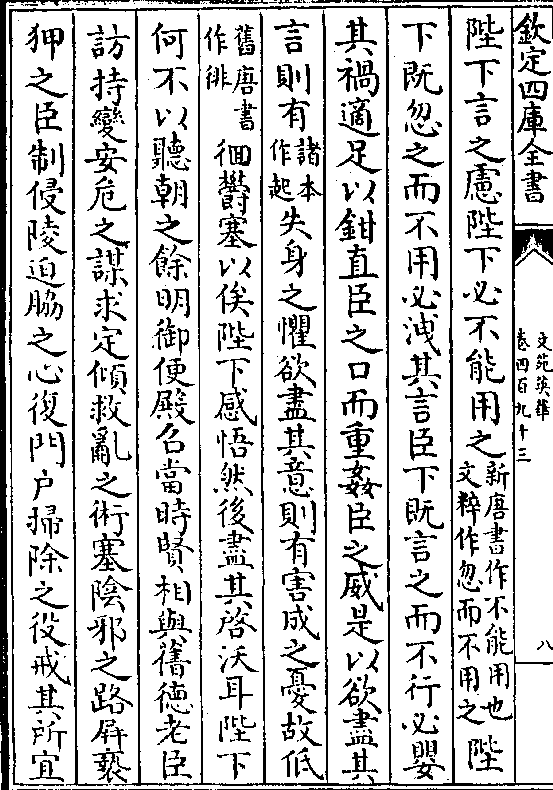 欽定四庫全書
文苑英華
卷四百九十三
八
陛下言之慮陛下必不能用之新唐書作不能用也文粹作忽而不用之陛
下既忽之而不用必洩其言臣下既言之而不行必嬰
其禍適足以鉗直臣之口而重姦臣之威是以欲盡其
言則有諸本作起失身之懼欲盡其意則有害成之憂故低
舊唐書作徘徊鬱塞以俟陛下感悟然後盡其啓沃耳陛下
何不以聽朝之餘明御便殿召當時賢相與舊德老臣
訪持變安危之謀求定傾救亂之術塞陰邪之路屏䙝
狎之臣制侵陵迫脇之心復門戶掃除之役戒其所宜